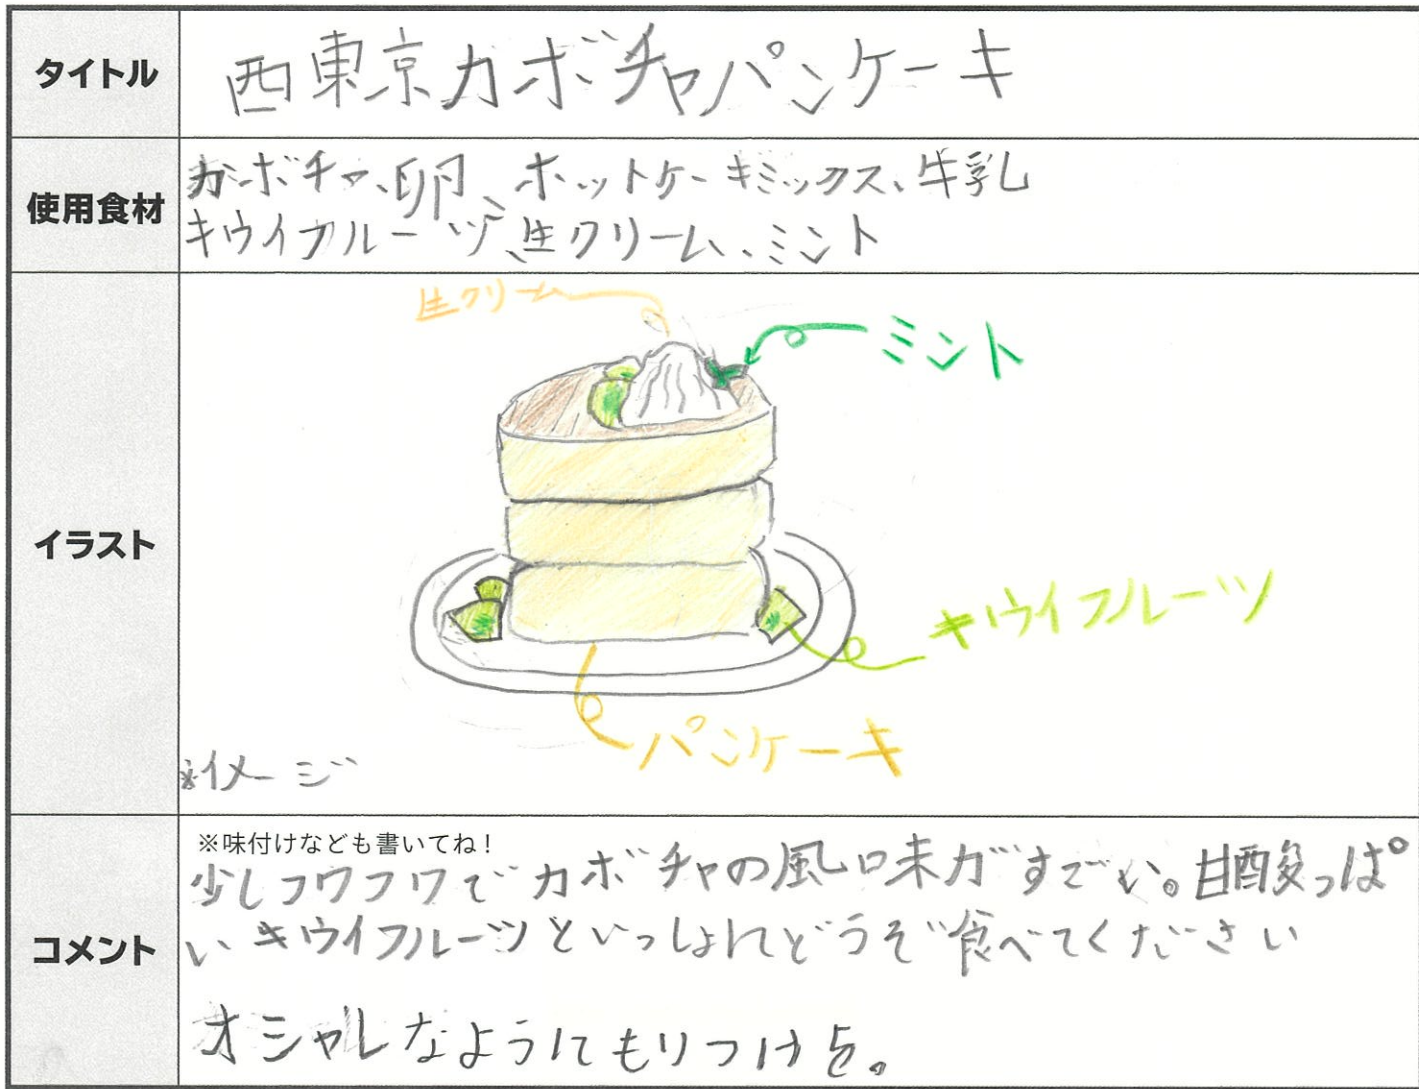 タイトル
西東京カボチャパンケーキ
使用食材
カボチャ、卵、ホットケーキミックス、牛乳
キウイフルーツ、生クリーム、ミント
イラスト
生クリーム
ミント
キウイフルーツ
パンケーキ
※イメージ
コメント
※味付けなども書いてね!
少しフワフワでカボチャの風味がすごい。甘酸っぱ
いキウイフルーツといっしょにどうぞ食べてください
オシャレなようにもりつけを。